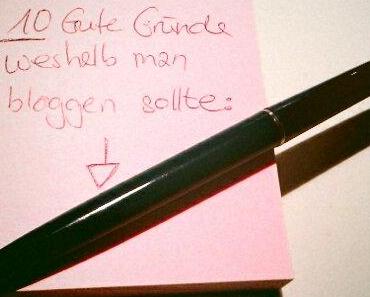 10 Gute Gründe
weshalb man
bloggen sollte: